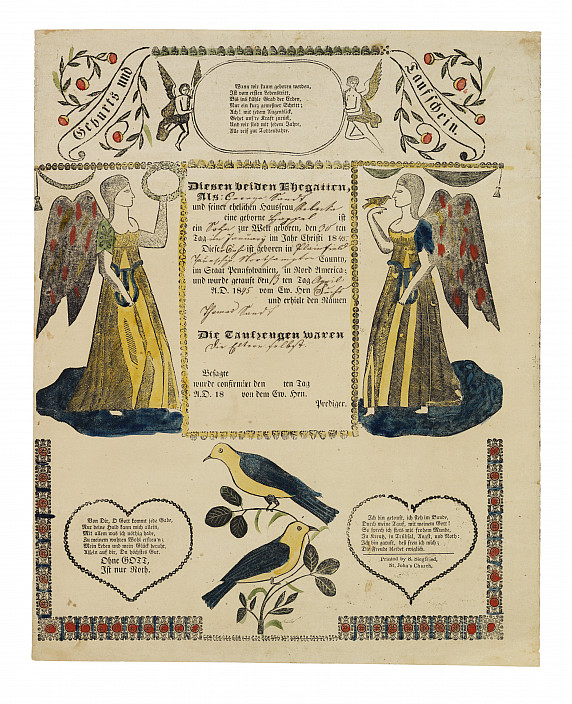 Geburts und
Taufschein.
Wann wir kaum geboren werden,
Ist vom ersten Lebenstritt,
Bis ins kühle Grab der Erden,
Nur ein kurz gemeßner Schritt;
Ach! mit jedem Augenblick,
Gehet unsre Kraft zurück,
Und wir sind mit jedem Jahre,
Alle reif zur Todtenbahre.
Diesen beiden Ehegatten,
Als: George Sandt
und seiner ehelichen Hausfrau
eine geborne ist
ein Sohn zur Welt geboren, den
Tag im Januar im Jahr Christi 18
Dieser ist geboren in Plainfield
Taunschip Northampton County,
im Staat Pennsylvanien, in Nord America;
und wurde getauft den ten Tag April
A.D. 1845 vom Ew. Hrn
und erhielt den Namen
Thomas Sandt
Die Taufzeugen waren
Die Eltern selbst
Besagte
wurde confirmirt den ten Tag
A.D. 18 von dem Ew. Hrn.
Prediger.
Von Dir, O Gott kommt jede Gabe,
Nur deine Huld kann mich allein,
Mit allem was ich nöthig habe,
Zu meinem wahren Wohl erfreu'n;
Mein Leben und mein Glück beruht,
Allein auf dir, Du höchstes Gut.
Ohne GOTT,
Ist nur Noth.
Ich bin getauft, ich steh im Bunde,
Durch meine Tauf, mit meinem Gott!
So sprech ich stets mit frohem Munde,
In Kreuz, in Trübsal, Angst, und Noth:
Ich bin getauft, deß freu ich mich;
Die Freude bleibet ewiglich.
Printed by S. Siegfried,
St. John's Church,